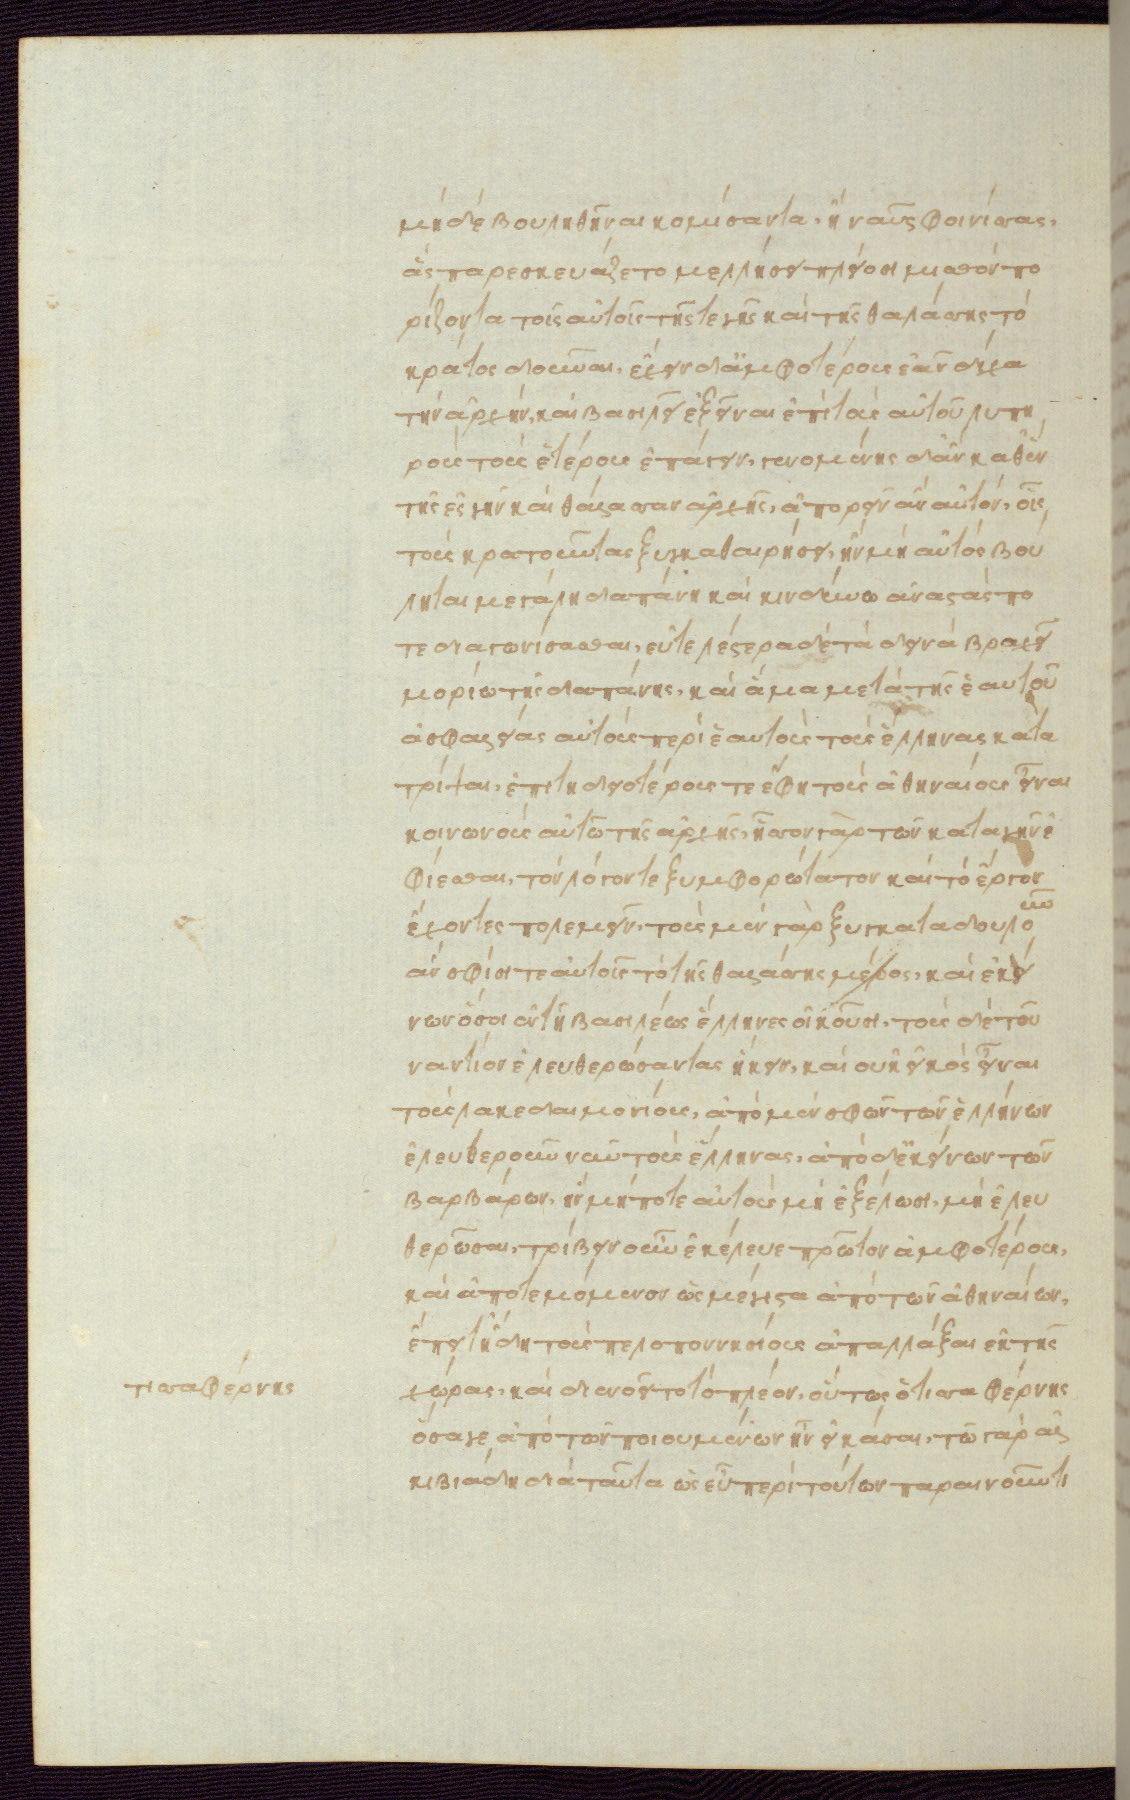 μηδὲ βουληθῆναι κομίσαντα, ἢ ναῦς φοινίσσας,
ἃς παρεσκευάζετο μελλήσει πληροῖ μισθόν πο
ρίζοντα τοῖς αὐτοῖς τῆς τε γῆς καὶ τῆς θαλάσσης τὸ
κράτος δοῦναι, ἔχειν δ' ἀμφοτέρους ἐᾶν δίχα
τὴν ἀρχὴν, καὶ βασιλεῖ ἐξεῖναι ἐπὶ τοὺς αὐτοῦ λυπη
ροὺς τοὺς ἑτέρους ἐπάγειν, γενομένης δ' ἂν καθ' ἓν
τῆς ἐς γῆν καὶ θάλασσαν ἀρχῆς, ἀπορεῖν ἂν αὐτὸν, οἷς
τοὺς κρατοῦντας ξυγκαθαιρήσει, ἢν μὴ αὐτὸς βού
ληται μεγάλῃ δαπάνῃ καὶ κινδύνω ἀναστάς πο
τε διαγωνίσασθαι, εὐτελέστερα δὲ τὰ δεινὰ βραχεῖ
μορίω τῆς δαπάνης, καὶ ἅμα μετὰ τῆς ἑαυτοῦ
ἀσφαλείας αὐτοὺς περὶ ἑαυτοὺς τοὺς ἕλληνας κατα
τρίψαι, ἐπιτηδειοτέρους τε ἔφη τοὺς ἀθηναίους εἶναι
κοινωνοὺς αὐτῶ τῆς ἀρχῆς, ἧσσον γὰρ τῶν κατὰ γῆν ἐ
φίεσθαι, τὸν λόγον τε ξυμφορώτατον καὶ τὸ ἔργον
ἔχοντες πολεμεῖν, τοὺς μὲν γὰρ ξυγκαταδουλοῦν
ἂν σφίσι τε αὐτοῖς τὸ τῆς θαλάσσης μέρος, καὶ ἐκεί
νων ὅσοι ἐν τῇ βασιλέως ἕλληνες οἰκοῦσι, τοὺς δὲ τοὐ
ναντίον ἐλευθερώσαντας ἥκειν, καὶ οὐκ εἰκὸς εἶναι
τοὺς λακεδαιμονίους, ἀπὸ μὲν σφῶν τῶν ἑλλήνων
ἐλευθεροῦν νῦν τοὺς ἕλληνας, ἀπὸ δ' ἐκείνων τῶν
βαρβάρων, ἢν μή ποτε αὐτοὺς μὴ ἐξέλωσι, μὴ ἐλευ
θερῶσαι, τρίβειν οὖν ἐκέλευε πρῶτον ἀμφοτέρους,
καὶ ἀποτεμόμενον ὡς μέγιστα ἀπὸ τῶν ἀθηναίων,
ἔπειτ' ἤδη τοὺς πελοποννησίους ἀπαλλάξαι ἐκ τῆς
χώρας, καὶ διενοεῖτο τὸ πλέον, οὕτως ὁ τισσαφέρνης
ὅσα γε ἀπὸ τῶν ποιουμένων ἦν εἰκάσαι, τῶ γὰρ ἀλ
κιβιάδη διὰ ταῦτα ὡς εὖ περὶ τούτων παραινοῦντι
τισσαφέρνης